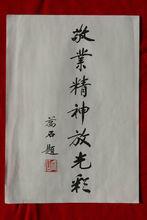 敬業精神放光彩
萬石題